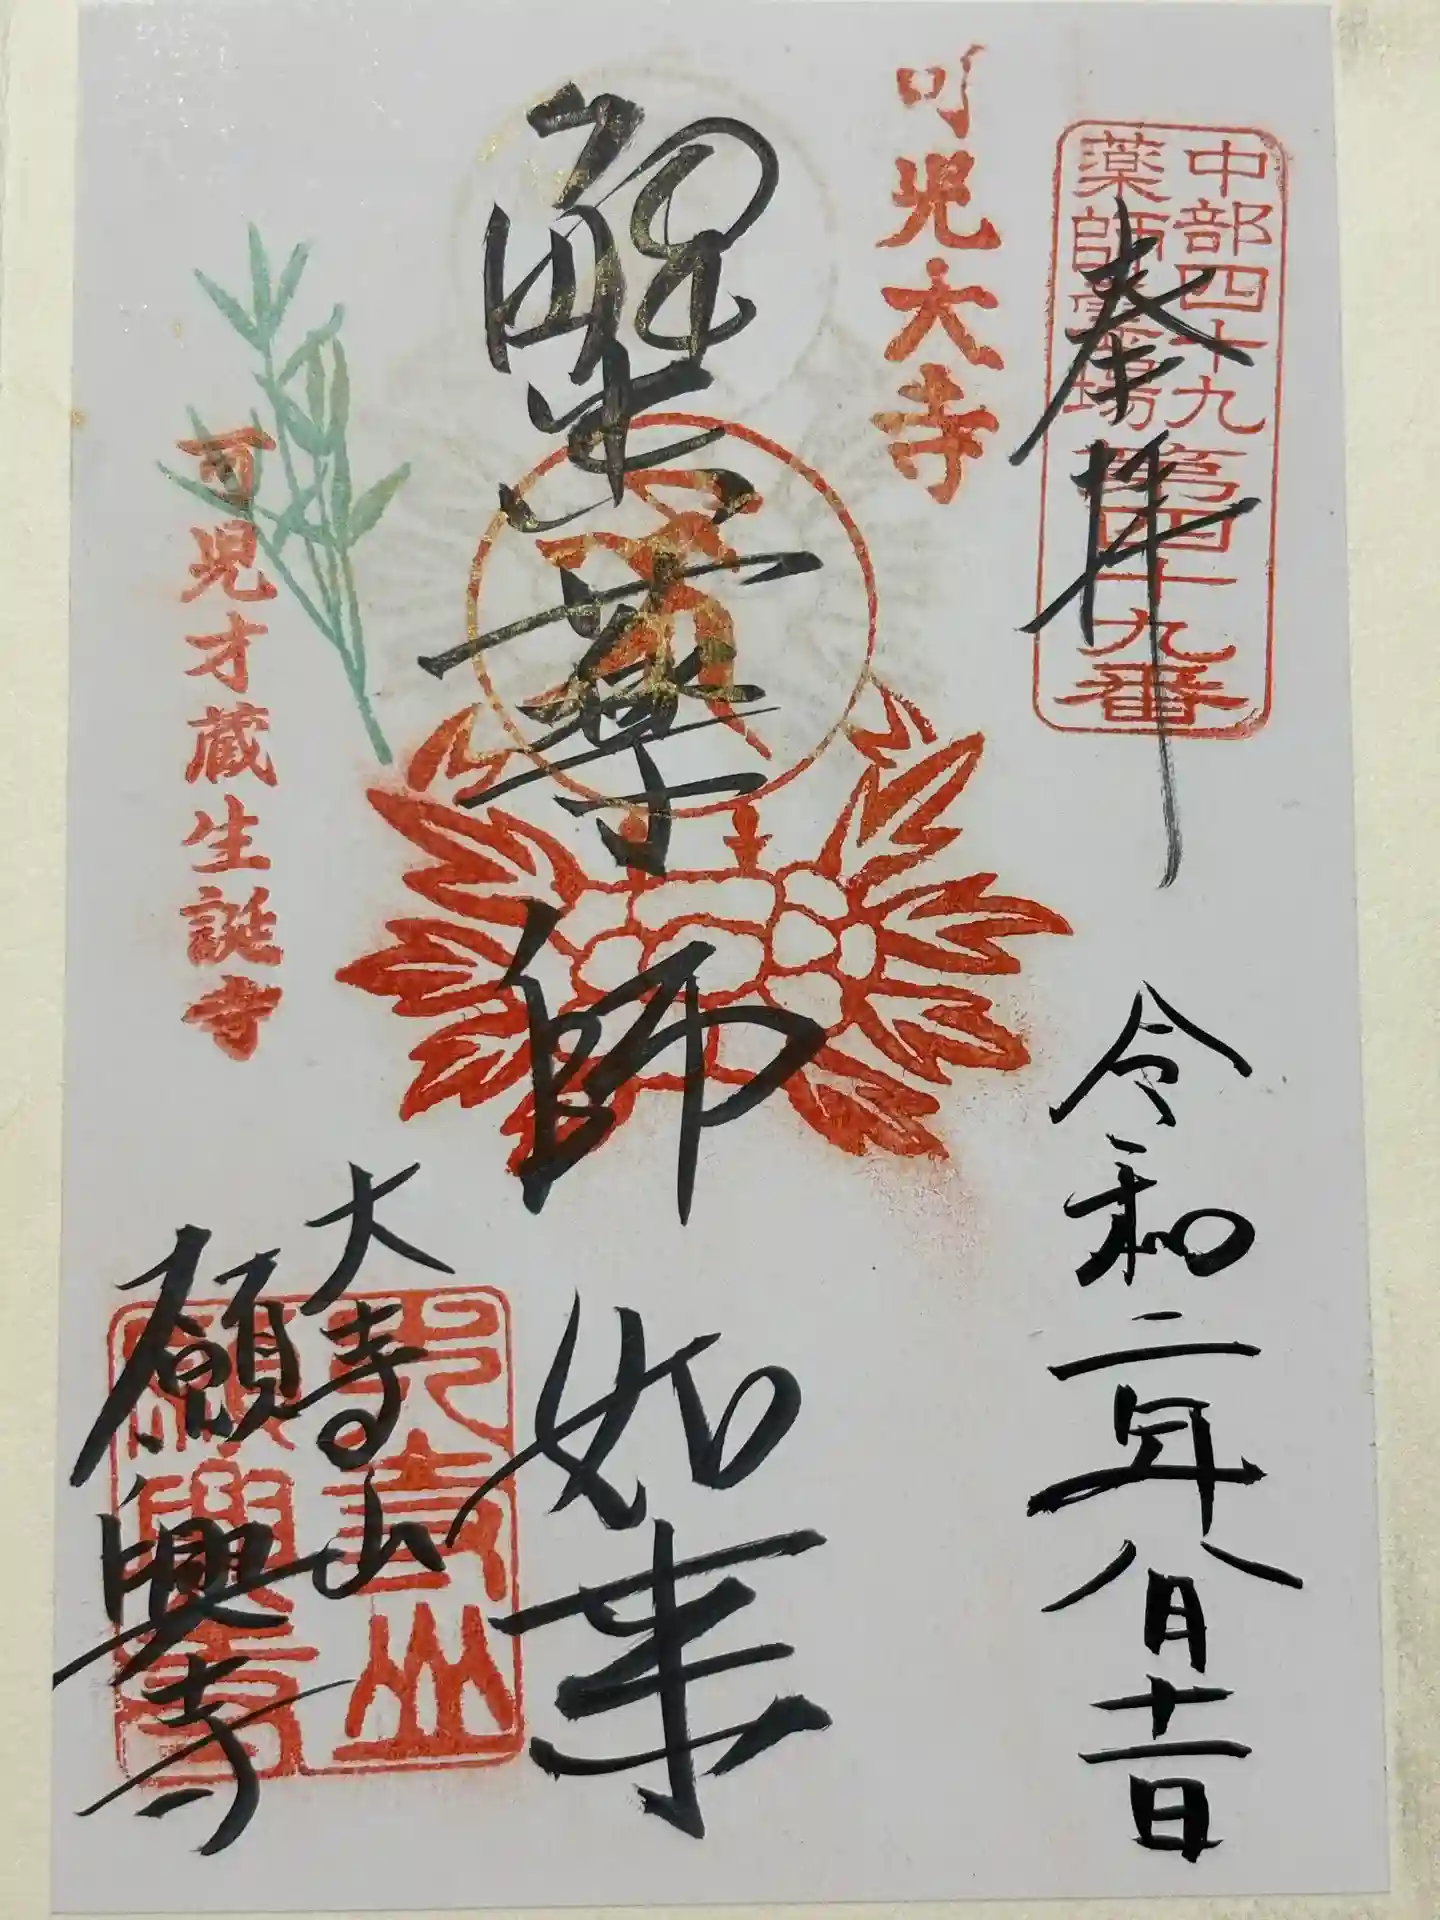 中部四十九
薬師霊場
第四十九番
奉拝
令和二年八月十一日
可児大寺
蟹薬師如来
可児才蔵生誕寺
大寺山
願興寺
大寺山
願興寺